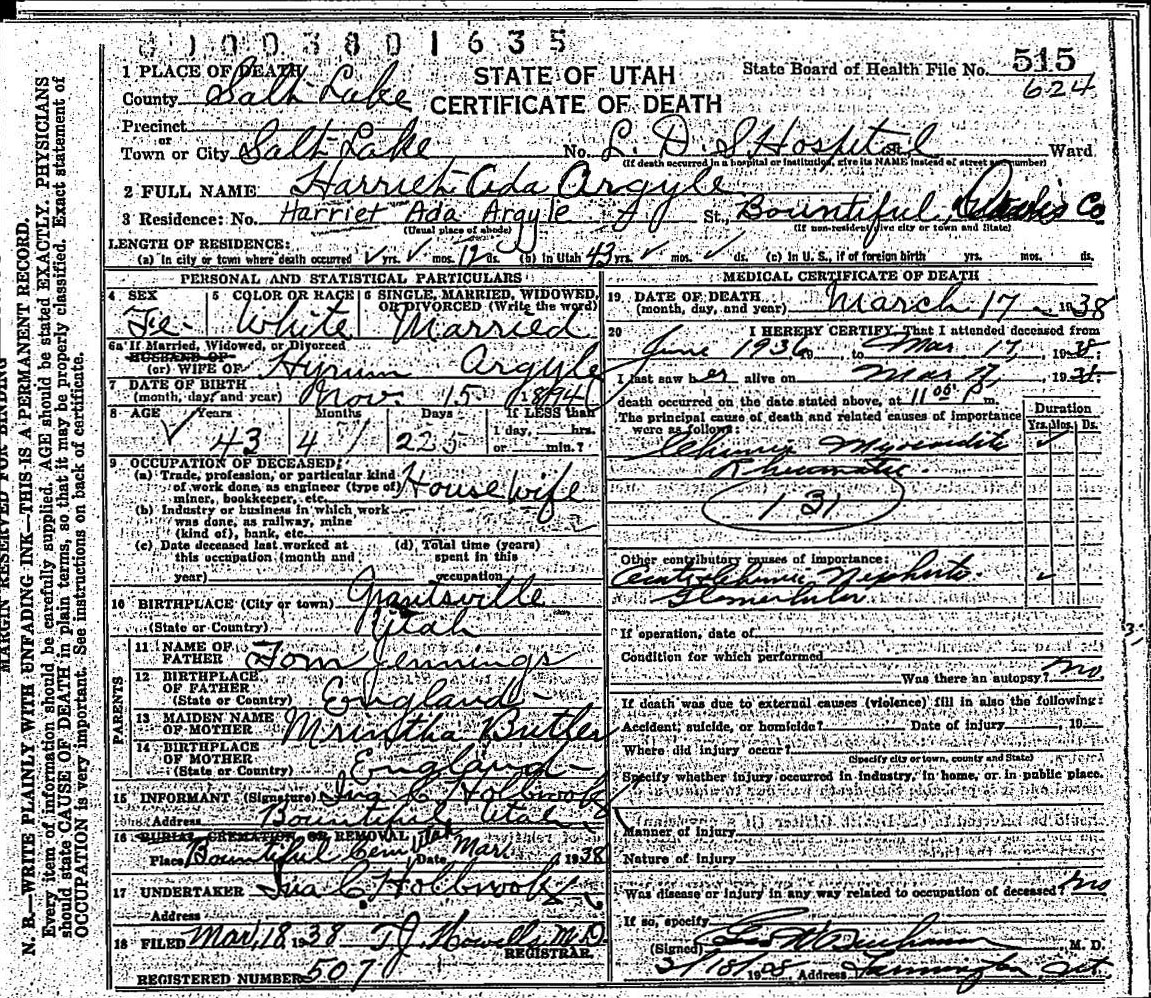 01003801635
1 PLACE OF DEATH
STATE OF UTAH
CERTIFICATE OF DEATH
State Board of Health File No. 515
624
County Salt Lake
Precinct
or
Town or City Salt Lake No. L. D. S Hospital Ward
(If death occurred in a hospital or institution, give its NAME instead of street and number)
2 FULL NAME Harriet Ada Argyle
3 Residence: No. Harriet Ada Argyle St., Bountiful, Davis Co
(Usual place of abode) (If non-resident give city or town and State)
LENGTH OF RESIDENCE:
(a) in city or town where death occurred yrs. mos. 12 ds. (b) in Utah 43 yrs. mos. ds. (c) in U. S., if of foreign birth yrs. mos. ds.
PERSONAL AND STATISTICAL PARTICULARS
4 SEX Fe-
5 COLOR OR RACE White
6 SINGLE, MARRIED, WIDOWED, OR DIVORCED (Write the word) Married
6a If Married, Widowed, or Divorced
HUSBAND OF
(or) WIFE OF Hyrum Argyle
7 DATE OF BIRTH
(month, day, and year) Nov. 15 1894
8 AGE Years Months Days If LESS than
43 4 1 day, hrs.
or min.?
9 OCCUPATION OF DECEASED:
(a) Trade, profession, or particular kind
of work done, as engineer (type of)
miner, bookkeeper, etc. Housewife
(b) Industry or business in which work
was done, as railway, mine
(kind of), bank, etc.
(c) Date deceased last worked at
this occupation (month and
year)
(d) Total time (years)
spent in this
occupation
10 BIRTHPLACE (City or town) Grantsville
(State or Country) Utah
PARENTS
11 NAME OF
FATHER Tom Jennings
12 BIRTHPLACE
OF FATHER
(State or Country) England
13 MAIDEN NAME
OF MOTHER Mrintha Butler
14 BIRTHPLACE
OF MOTHER
(State or Country) England
15 INFORMANT (Signature) Ina C Holbrook
Address Bountiful Utah
16 BURIAL, CREMATION, OR REMOVAL
Place Bountiful Cem Utah Date Mar. 1938
17 UNDERTAKER Ina C. Holbrook
Address
18 FILED Mar. 18 1938 T J. Howells, M.D.
REGISTRAR.
REGISTERED NUMBER 507
MEDICAL CERTIFICATE OF DEATH
19 DATE OF DEATH
(month, day, and year) March 17 1938
20 I HEREBY CERTIFY, That I attended deceased from
June 1936, to Mar 17, 1938:
I last saw her alive on Mar 17, 19
death occurred on the date stated above, at 11 05 P m.
The principal cause of death and related causes of importance
were as follows:
Duration
Yrs. Mos. Ds.
Chronic Myocarditis
Rheumatic.
131
Other contributory causes of importance:
Chronic Nephritis
Glomerular
If operation, date of
Condition for which performed
Was there an autopsy? no
If death was due to external causes (violence) fill in also the following:
Accident, suicide, or homicide? Date of injury 19
Where did injury occur?
(Specify city or town, county and State)
Specify whether injury occurred in industry, in home, or in public place.
Manner of injury
Nature of injury
Was disease or injury in any way related to occupation of deceased? no
If so, specify
(Signed) M. D.
3/18/1938 Address Farmington Ut.
MARGIN RESERVED FOR BINDING
N. B.—WRITE PLAINLY WITH UNFADING INK—THIS IS A PERMANENT RECORD.
Every item of information should be carefully supplied. AGE should be stated EXACTLY. PHYSICIANS
should state CAUSE OF DEATH in plain terms, so that it may be properly classified. Exact statement of
OCCUPATION is very important. See instructions on back of certificate.